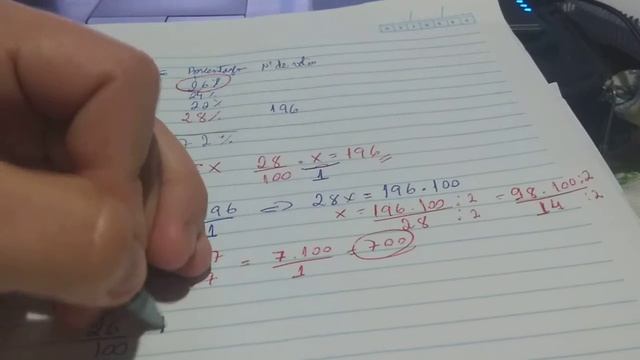 = Porcentagem Nº de
26%
24%
22%
28% 196
72%
x 28/100 · x/1 = 196
96/1 ⇒ 28x = 196 · 100
x = 196 · 100 :2 / 28 :2 = 98 · 100 :2 / 14 :2
7/7 = 7 · 100 / 1 = 700
26/100